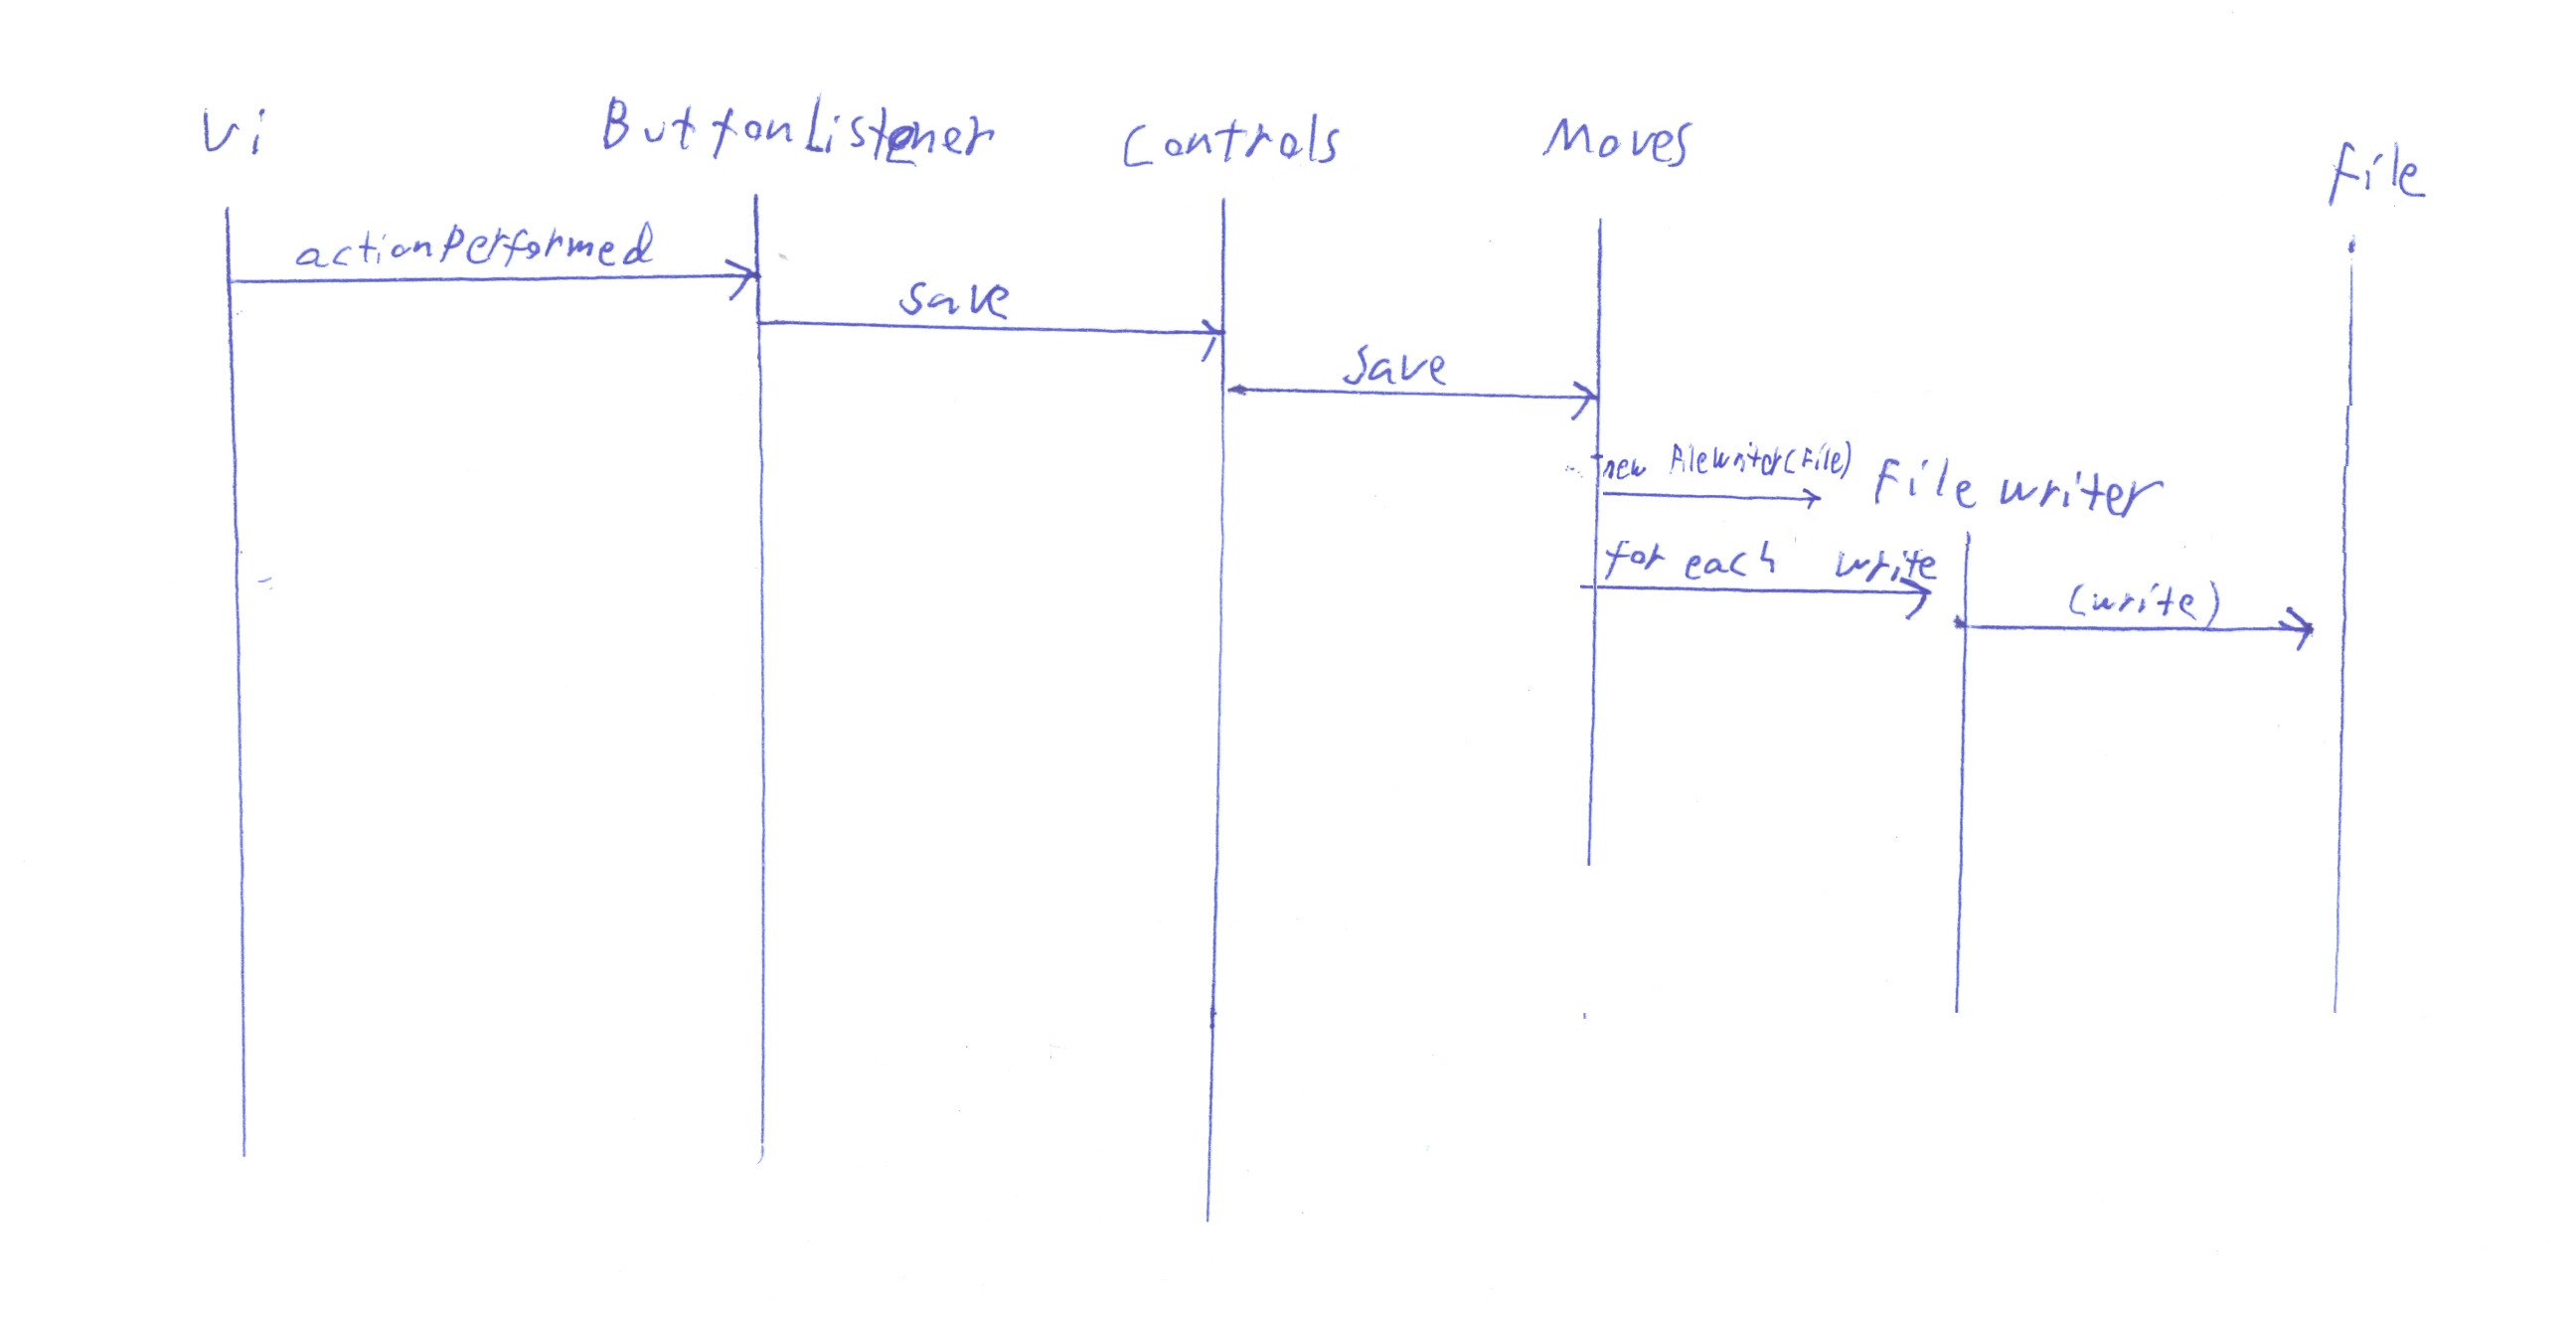 Ui ButtonListener Controls Moves File
actionPerformed
save
save
new FileWriter(File) File writer
for each write
(write)